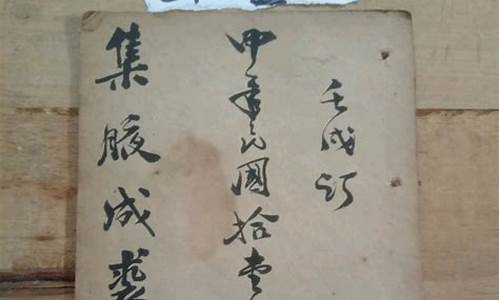 壬戌訂
中華民國拾壹
集腋成裘